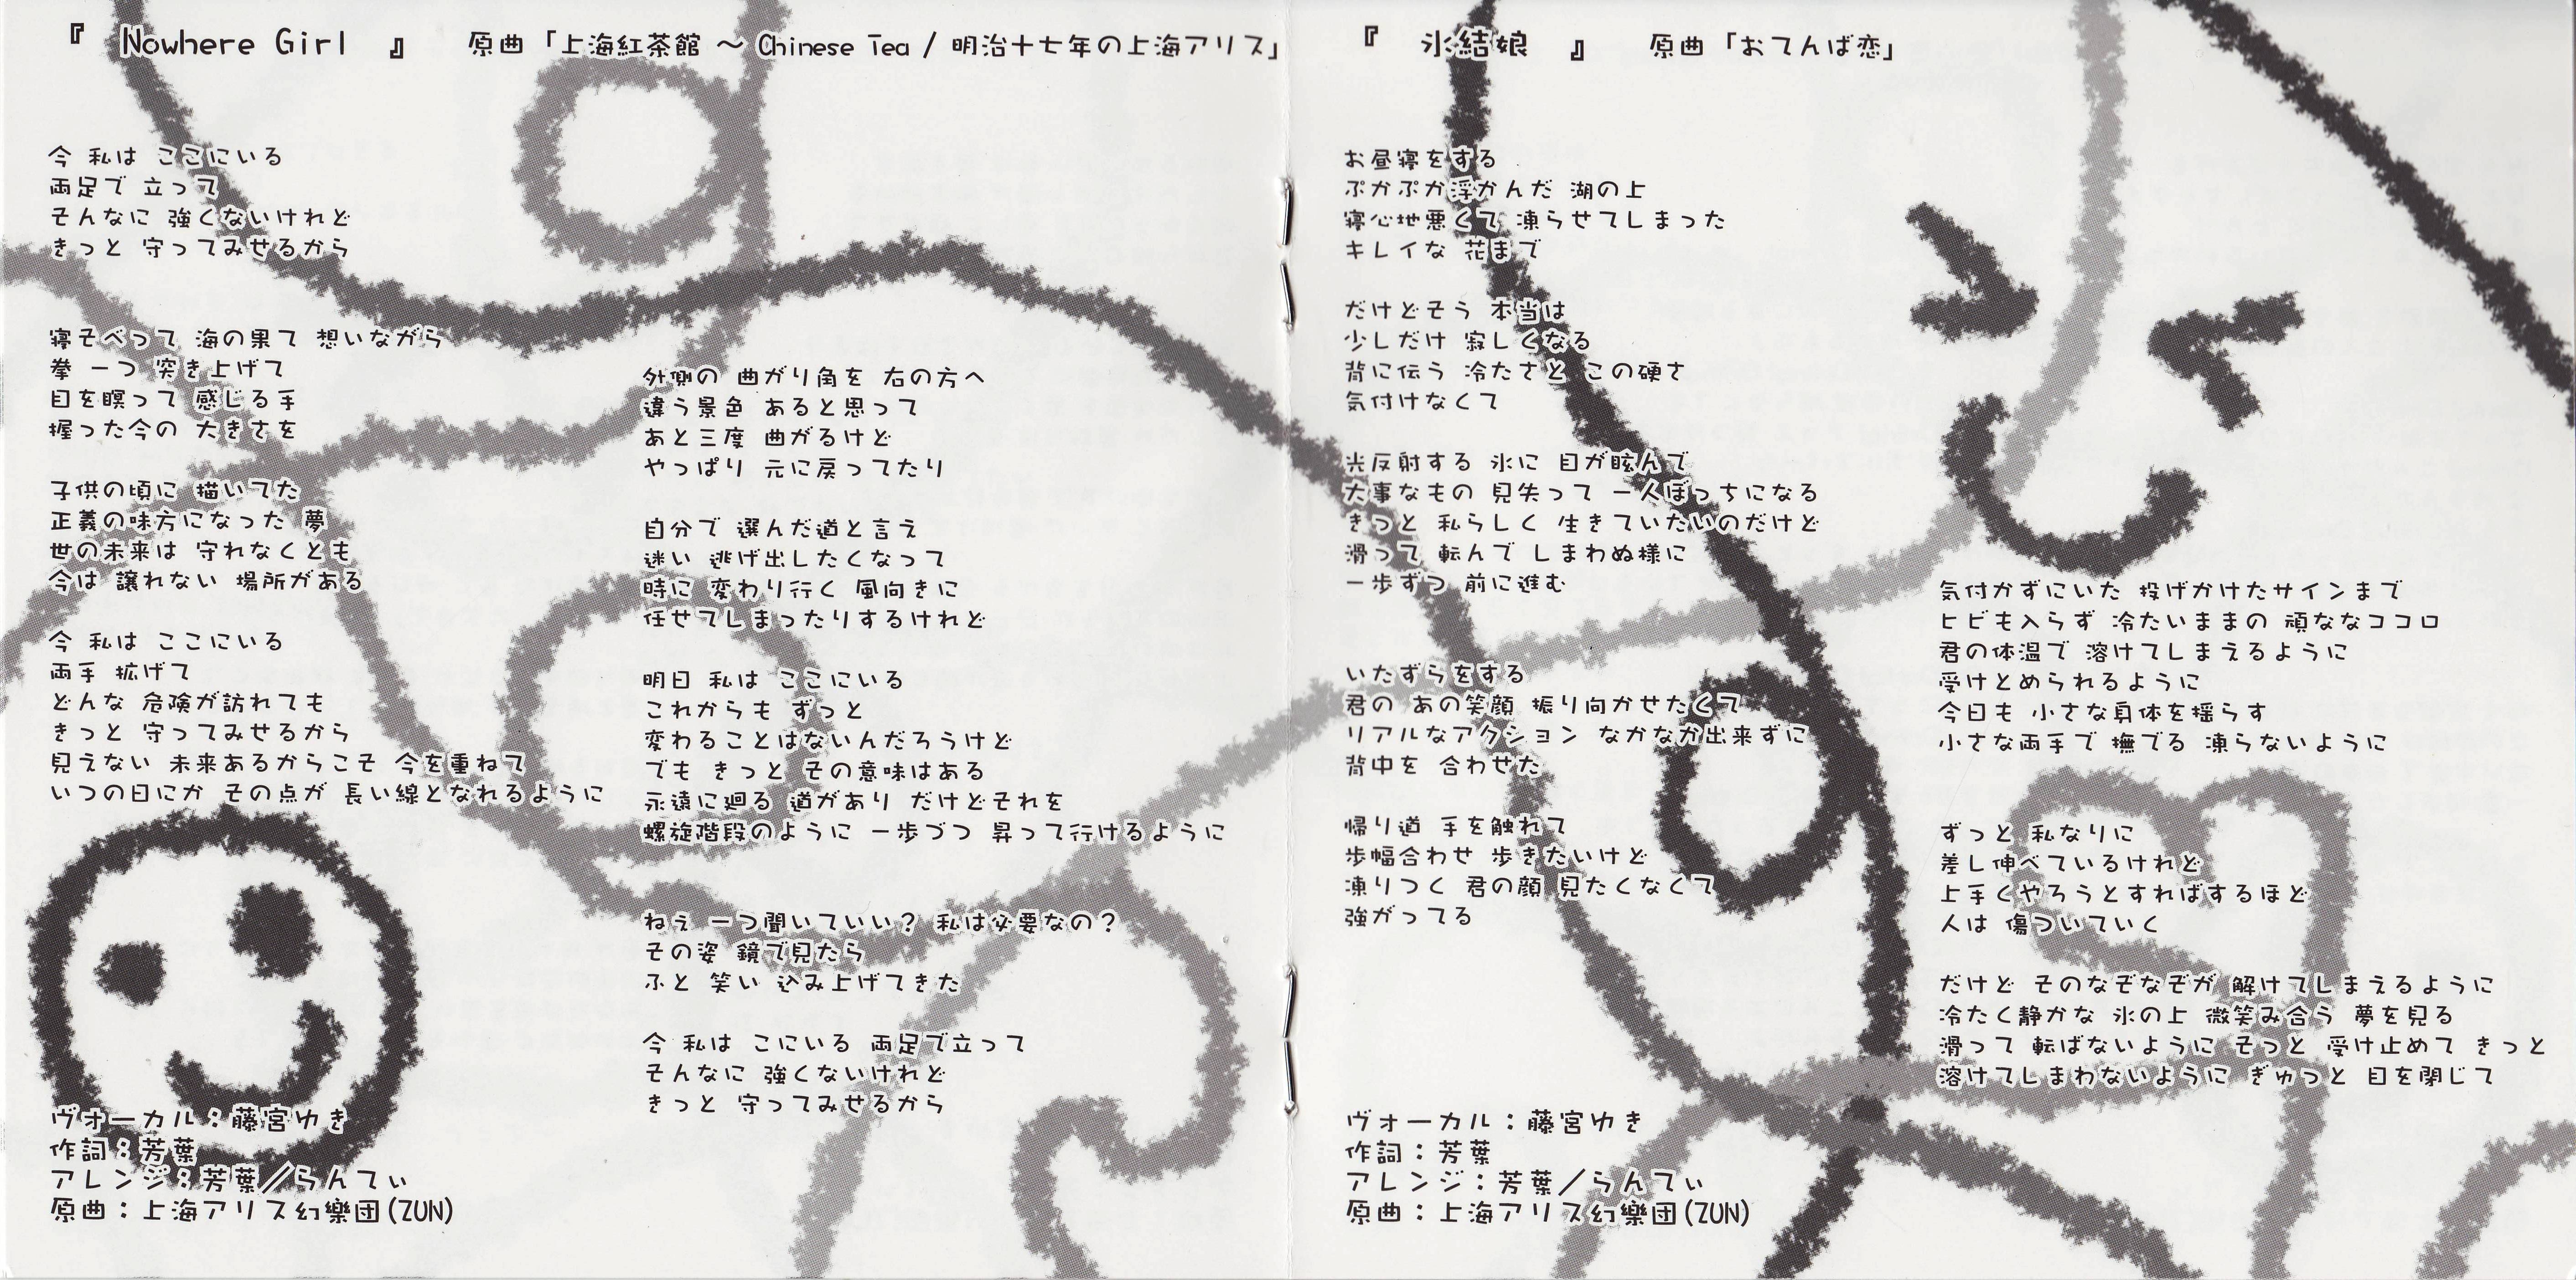 『 Nowhere Girl 』 原曲「上海紅茶館 ～ Chinese Tea / 明治十七年の上海アリス」
今 私は ここにいる
両足で 立って
そんなに 強くないけれど
きっと 守ってみせるから
寝そべって 海の果て 想いながら
拳 一つ 突き上げて
目を瞑って 感じる手
握った今の 大きさを
子供の頃に 描いてた
正義の味方になった 夢
世の未来は 守れなくとも
今は 譲れない 場所がある
今 私は ここにいる
両手 拡げて
どんな 危険が訪れても
きっと 守ってみせるから
見えない 未来あるからこそ 今を重ねて
いつの日にか その点が 長い線となれるように
外側の 曲がり角を 右の方へ
違う景色 あると思って
あと三度 曲がるけど
やっぱり 元に戻ってたり
自分で 選んだ道と言え
迷い 逃げ出したくなって
時に 変わり行く 風向きに
任せてしまったりするけれど
明日 私は ここにいる
これからも ずっと
変わることはないんだろうけど
でも きっと その意味はある
永遠に廻る 道があり だけどそれを
螺旋階段のように 一歩づつ 昇って行けるように
ねぇ 一つ聞いていい？ 私は必要なの？
その姿 鏡で見たら
ふと 笑い 込み上げてきた
今 私は こにいる 両足で立って
そんなに 強くないけれど
きっと 守ってみせるから
ヴォーカル：藤宮ゆき
作詞：芳葉
アレンジ：芳葉／らんてぃ
原曲：上海アリス幻樂団(ZUN)
『 氷結娘 』 原曲「おてんば恋」
お昼寝をする
ぷかぷか浮かんだ 湖の上
寝心地悪くて 凍らせてしまった
キレイな 花まで
だけどそう 本当は
少しだけ 寂しくなる
背に伝う 冷たさと この硬さ
気付けなくて
光反射する 氷に 目が眩んで
大事なもの 見失って 一人ぼっちになる
きっと 私らしく 生きていたいのだけど
滑って 転んで しまわぬ様に
一歩ずつ 前に進む
いたずらをする
君の あの笑顔 振り向かせたくて
リアルなアクション なかなか出来ずに
背中を 合わせた
帰り道 手を触れて
歩幅合わせ 歩きたいけど
凍りつく 君の顔 見たくなくて
強がってる
気付かずにいた 投げかけたサインまで
ヒビも入らず 冷たいままの 頑ななココロ
君の体温で 溶けてしまえるように
受けとめられるように
今日も 小さな身体を揺らす
小さな両手で 撫でる 凍らないように
ずっと 私なりに
差し伸べているけれど
上手くやろうとすればするほど
人は 傷ついていく
だけど そのなぞなぞが 解けてしまえるように
冷たく静かな 氷の上 微笑み合う 夢を見る
滑って 転ばないように そっと 受け止めて きっと
溶けてしまわないように ぎゅっと 目を閉じて
ヴォーカル：藤宮ゆき
作詞：芳葉
アレンジ：芳葉／らんてぃ
原曲：上海アリス幻樂団(ZUN)